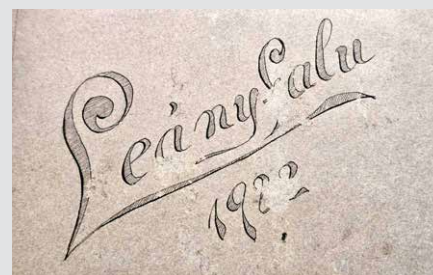 Leányfalu
1922